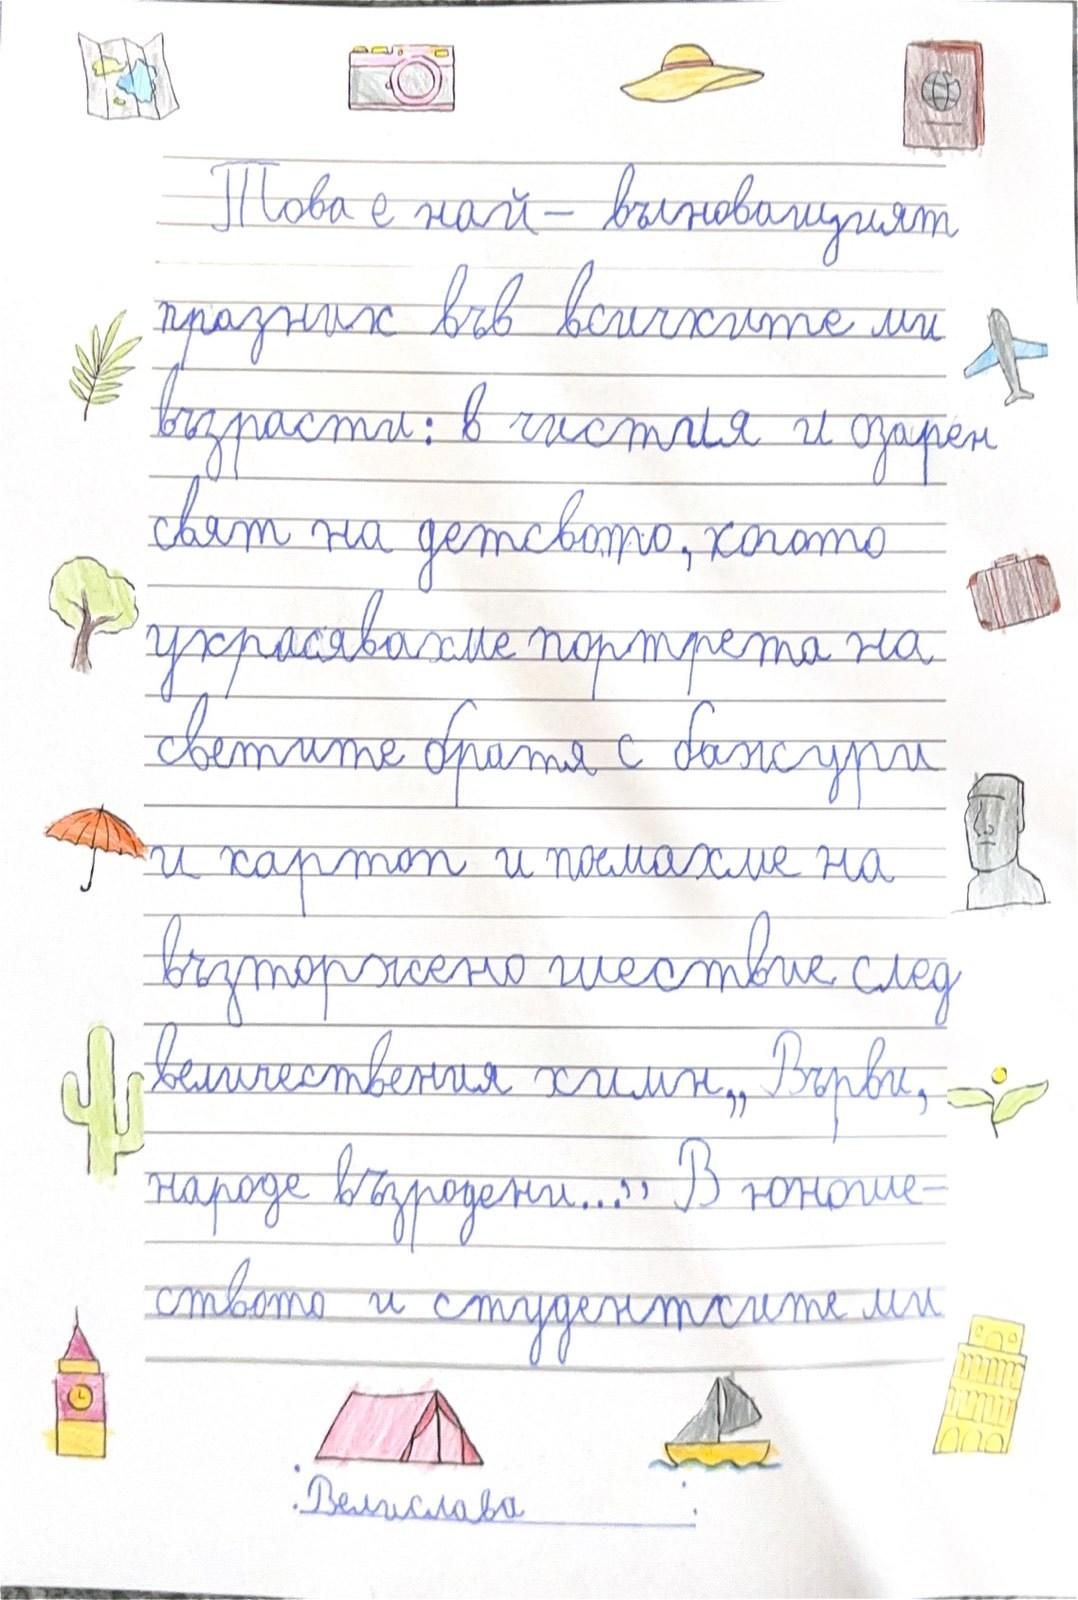 Това е най- вълноващият
празник във всичките ми
възрасти: в чистия и озарен
свят на детсвото, когото
украсявахме портрета на
светите братя с божури
и картон и поемахме на
възторжено шествие след
величествения химн „Върви,
народе възродени...” В юноше-
ството и студентките ми
Велислава